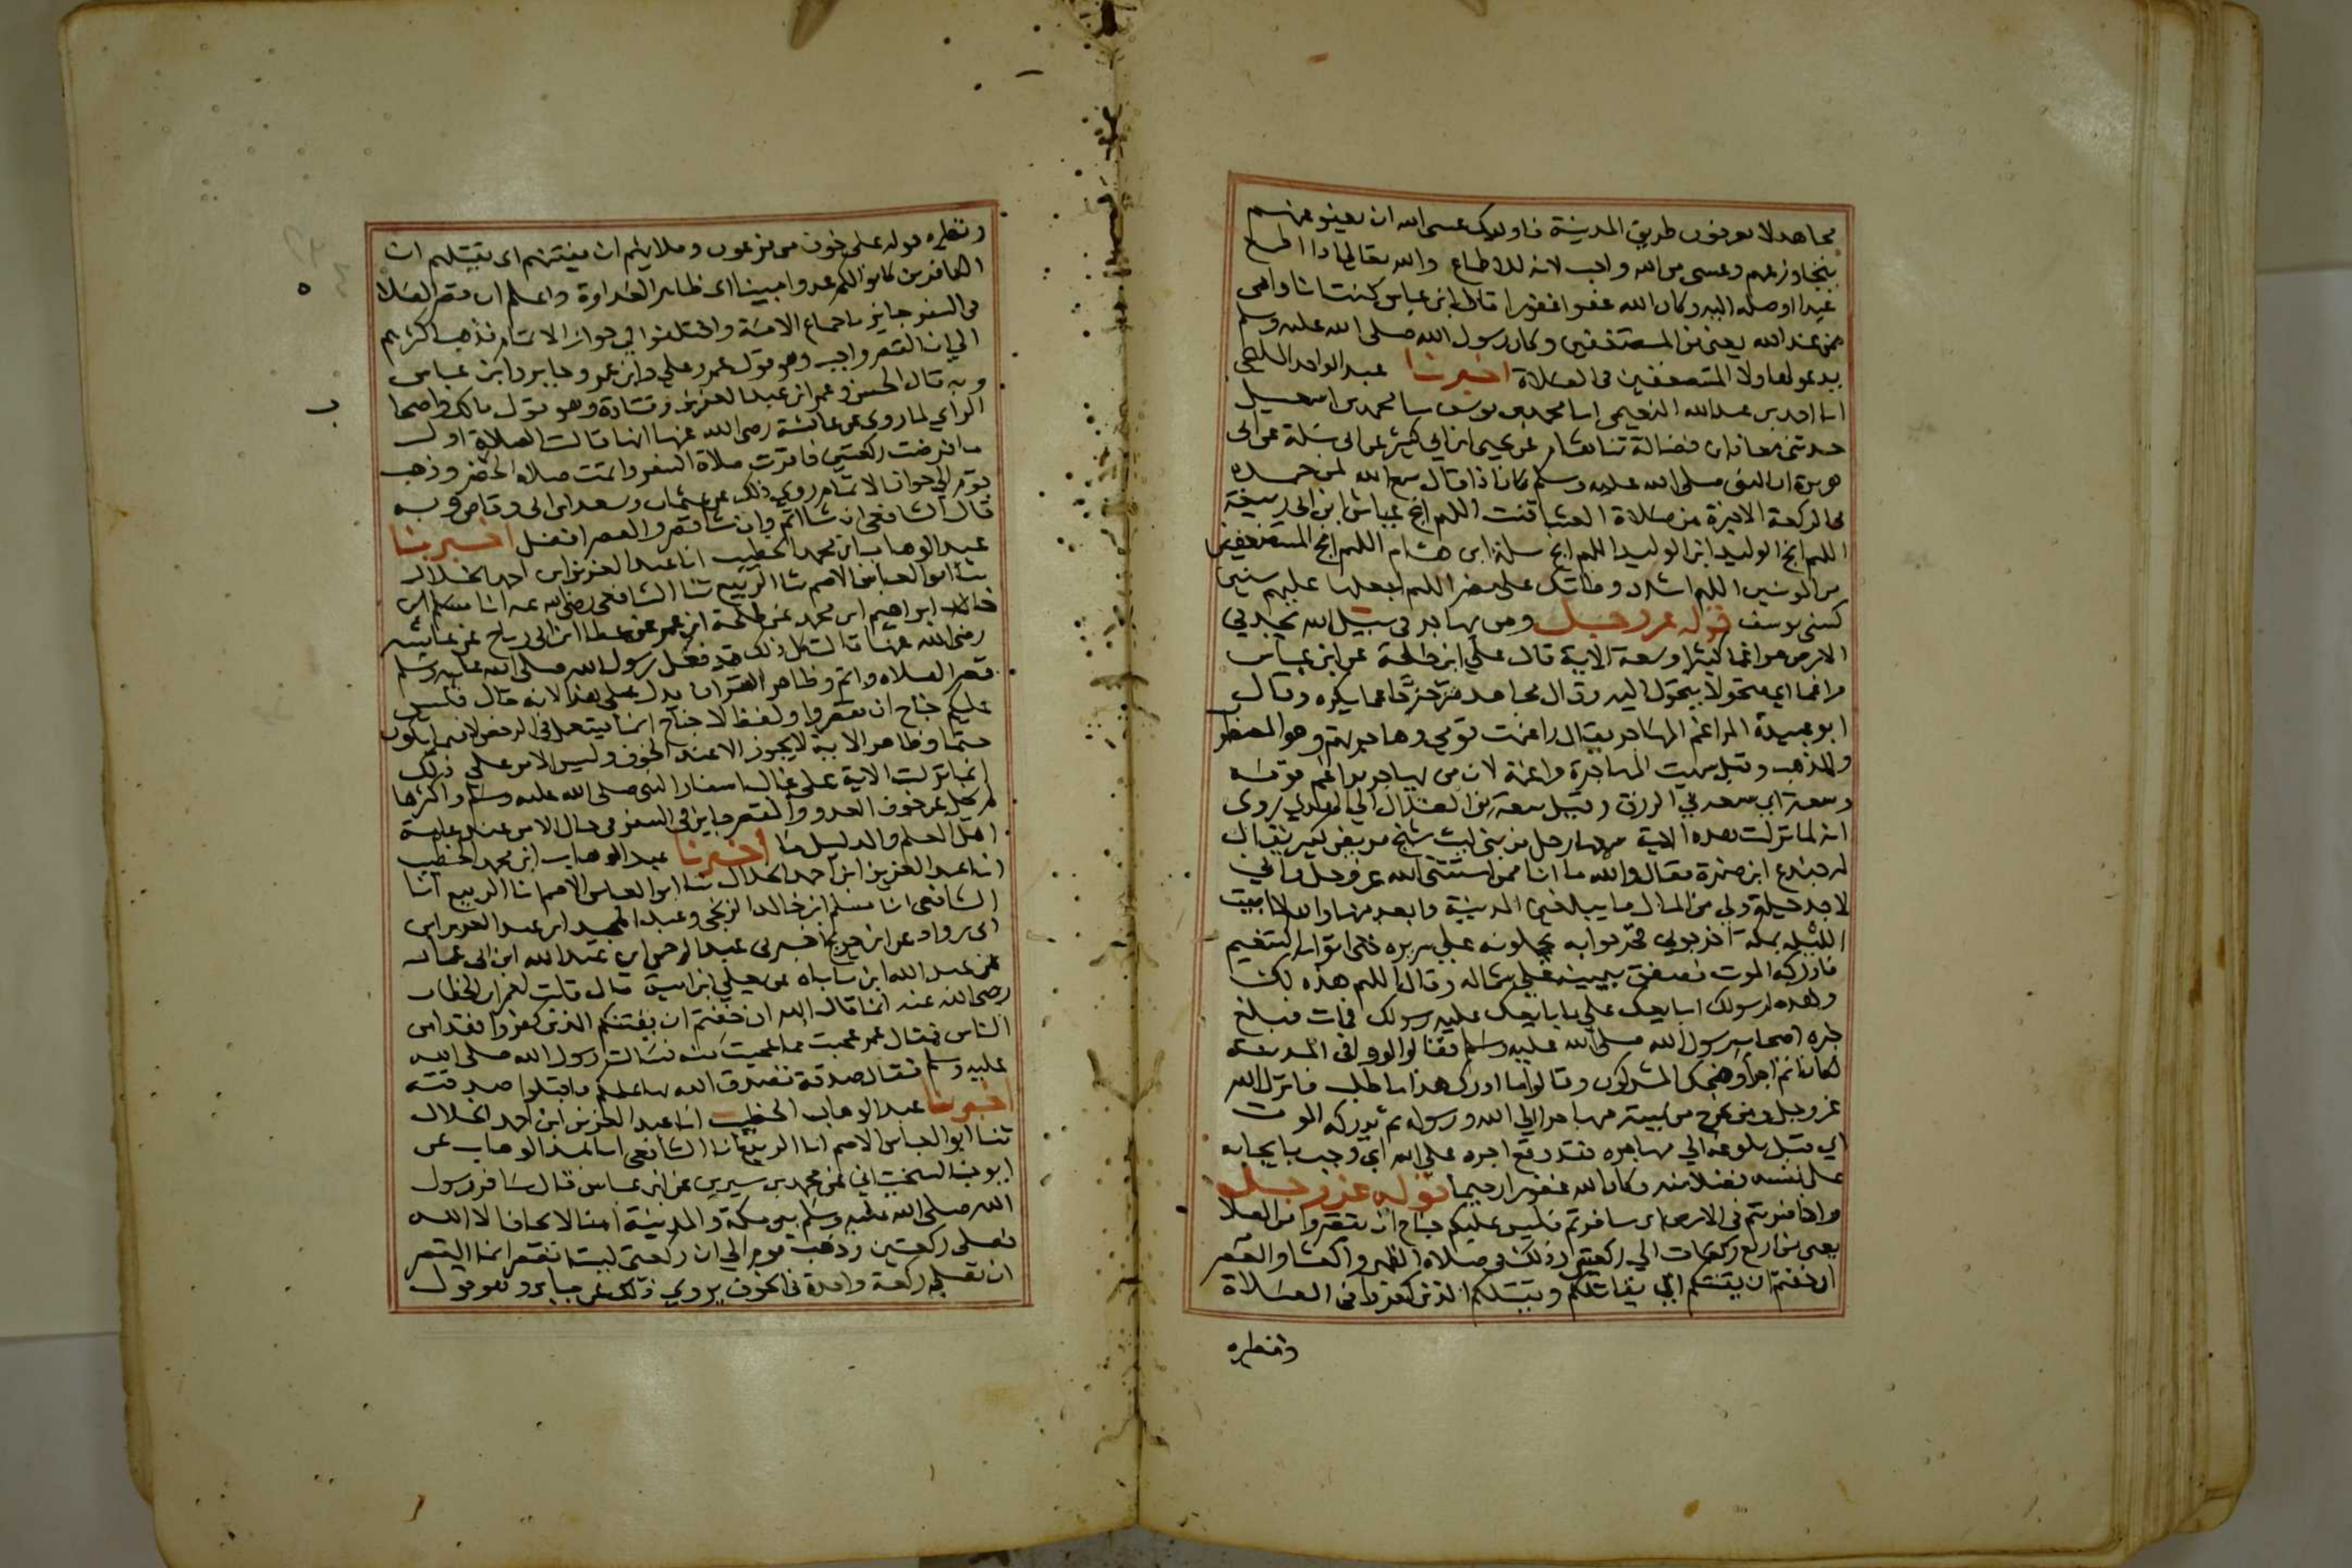 مجاهد لا يعرفون طريق المدينة فاوليك عسى الله ان يعفو عنهم
يتجاوز عنهم وعسى من الله واجب لانه للاطماع والله تعالى اذا اطمع
عبدا اوصله اليه وكان الله عفوا غفورا قال ابن عباس كنت انا وامى
ممن عذر الله يعنى من المستضعفين وكان رسول الله صلى الله عليه وسلم
يدعو لهاولا المستضعفين فى الصلاة اخبرنا عبد الواحد المليحى
انا احمد بن عبد الله النعيمى انا محمد بن يوسف نا محمد بن اسمعيل
حدثنى معاذ بن فضالة ثنا هشام عن يحيى ابن ابي كثير عن ابى سلمة عن ابى
هريرة ان النبى صلى الله عليه وسلم كان اذا قال سمع الله لمن حمده
فى الركعة الاخيرة من صلاة العشا قنت اللهم انج عياش ابن ابى ربيعة
اللهم انج الوليد ابن الوليد اللهم انج سلمة ابن هشام اللهم انج المستضعفين
من المومنين اللهم اشدد وطاتك على مضر اللهم اجعلها عليهم سنين
كسنى يوسف قوله عز وجل ومن يهاجر فى سبيل الله يجد في
الارض مراغما كثيرا وسعة الاية قال علي ابن طلحة عن ابن عباس
مراغما اي متحولا يتحول اليه وقال مجاهد متزحزحا عما يكره وقال
ابو عبيدة المراغم المهاجر يقال راغمت قومي وهاجرتهم وهو المضطرب
والمذهب وقيل سميت المهاجرة مراغمة لان من يهاجر يراغم قومه
وسعة اى سعة في الرزق وقيل سعة من الضلال الي الهدى روى
انه لما نزلت هذه الاية سمعها رجل من بنى ليث شيخ مريض كبير يقال
له جندع ابن ضمرة فقال والله ما انا ممن استثنى الله عز وجل واني
لاجد حيلة ولي من المال ما يبلغني المدينة وابعد منها والله لا ابيت
الليلة بمكة اخرجوني فخرجوا به يحملونه علي سريره حتى اتوا به التنعيم
فادركه الموت فصفق بيمينه علي شماله وقال اللهم هذه لك
وهذه لرسولك ابايعك علي ما بايعك عليه رسولك فمات فبلغ
خبره اصحاب رسول الله صلى الله عليه وسلم فقالوا لو وافى المدينة
لكان اتم اجرا وضحك المشركون وقالوا ما ادرك هذا ما طلب فانزل الله
عز وجل ومن يخرج من بيته مهاجرا الي الله ورسوله ثم يدركه الموت
اي قبل بلوغه الي مهاجره فقد وقع اجره على الله اي وجب بايجابه
على نفسه فضلا منه وكان الله غفورا رحيما قوله عز وجل
واذا ضربتم فى الارض اى سافرتم فليس عليكم جناح ان تقصروا من الصلا
يعنى من اربع ركعات الي ركعتين وذلك فى صلاة الظهر والعشا والعصر
ان خفتم ان يفتنكم اي يغتالكم ويقتلكم الذين كفروا فى الصلاة
ونظيره
ونظيره قوله على خوف من فرعون وملايهم ان يفتنهم اى يقتلهم ان
الكافرين كانوا لكم عدوا مبينا اى ظاهر العداوة واعلم ان قصر الصلاة
فى السفر جايز باجماع الامة واختلفوا في جواز الاتمام فذهب اكثرهم
الي ان القصر واجب وهو قول عمر وعلي وابن عمر وجابر وابن عباس
وبه قال الحسن وعمر ابن عبد العزيز وقتادة وهو قول مالك واصحاب
الراي لما روى عن عائشة رضى الله عنها انها قالت الصلاة اول
ما فرضت ركعتين فاقرت صلاة السفر واتمت صلاة الحضر وذهب
قوم الي جواز الاتمام روي ذلك عن عثمان وسعد ابن ابى وقاص وبه
قال الشافعى ان شا اتم وان شا قصر والقصر افضل اخبرنا
عبد الوهاب ابن محمد الخطيب انا عبد العزيز ابن احمد الخلال
ثنا ابو العباس الاصم ثنا الربيع ثنا الشافعى رضى الله عنه انا
ابراهيم ابن محمد عن طلحة ابن عمرو عن عطا ابن ابى رباح عن عائشة
رضى الله عنها قالت كل ذلك قد فعل رسول الله صلى الله عليه وسلم
قصر الصلاة واتم وظاهر القران يدل على هذا لانه قال فليس
عليكم جناح ان تقصروا ولفظ لا جناح انما يستعمل فى الرخص لا فيما يكون
حتما وظاهر الاية لا يجوز الا عند الخوف وليس الامر على ذلك
انما نزلت الاية على غالب اسفار النبى صلى الله عليه وسلم واكثرها
لم يخل عن خوف العدو والقصر جايز فى السفر فى حال الامن عند عامة
اهل العلم والدليل ما اخبرنا عبد الوهاب ابن محمد الخطيب
انا عبد العزيز ابن احمد الخلال ثنا ابو العباس الاصم انا الربيع انا
الشافعى انا مسلم ابن خالد الزنجى وعبد المجيد ابن عبد العزيز ابن
ابى رواد عن ابن جريج اخبرنى عبد الرحمن ابن عبد الله ابن ابى عمار
عن عبد الله ابن باباه عن يعلي ابن امية قال قلت لعمر ابن الخطاب
رضى الله عنه انما قال الله ان خفتم ان يفتنكم الذين كفروا فقد امن
الناس فقال عمر عجبت مما عجبت منه فسالت رسول الله صلى الله
عليه وسلم فقال صدقة تصدق الله بها عليكم فاقبلوا صدقته
اخبرنا عبد الوهاب الخطيب انا عبد العزيز ابن احمد الخلال
ثنا ابو العباس الاصم انا الربيع انا الشافعى انا عبد الوهاب عن
ايوب السختياني عن محمد بن سيرين عن ابن عباس قال سافر رسول
الله صلى الله عليه وسلم بين مكة والمدينة امنا لا يخاف الا الله
فصلى ركعتين وذهب قوم الي ان ركعتى ليستا بقصر انما القصر
ان تصلي ركعة واحدة فى الخوف يروي ذلك عن جابر وهو قول